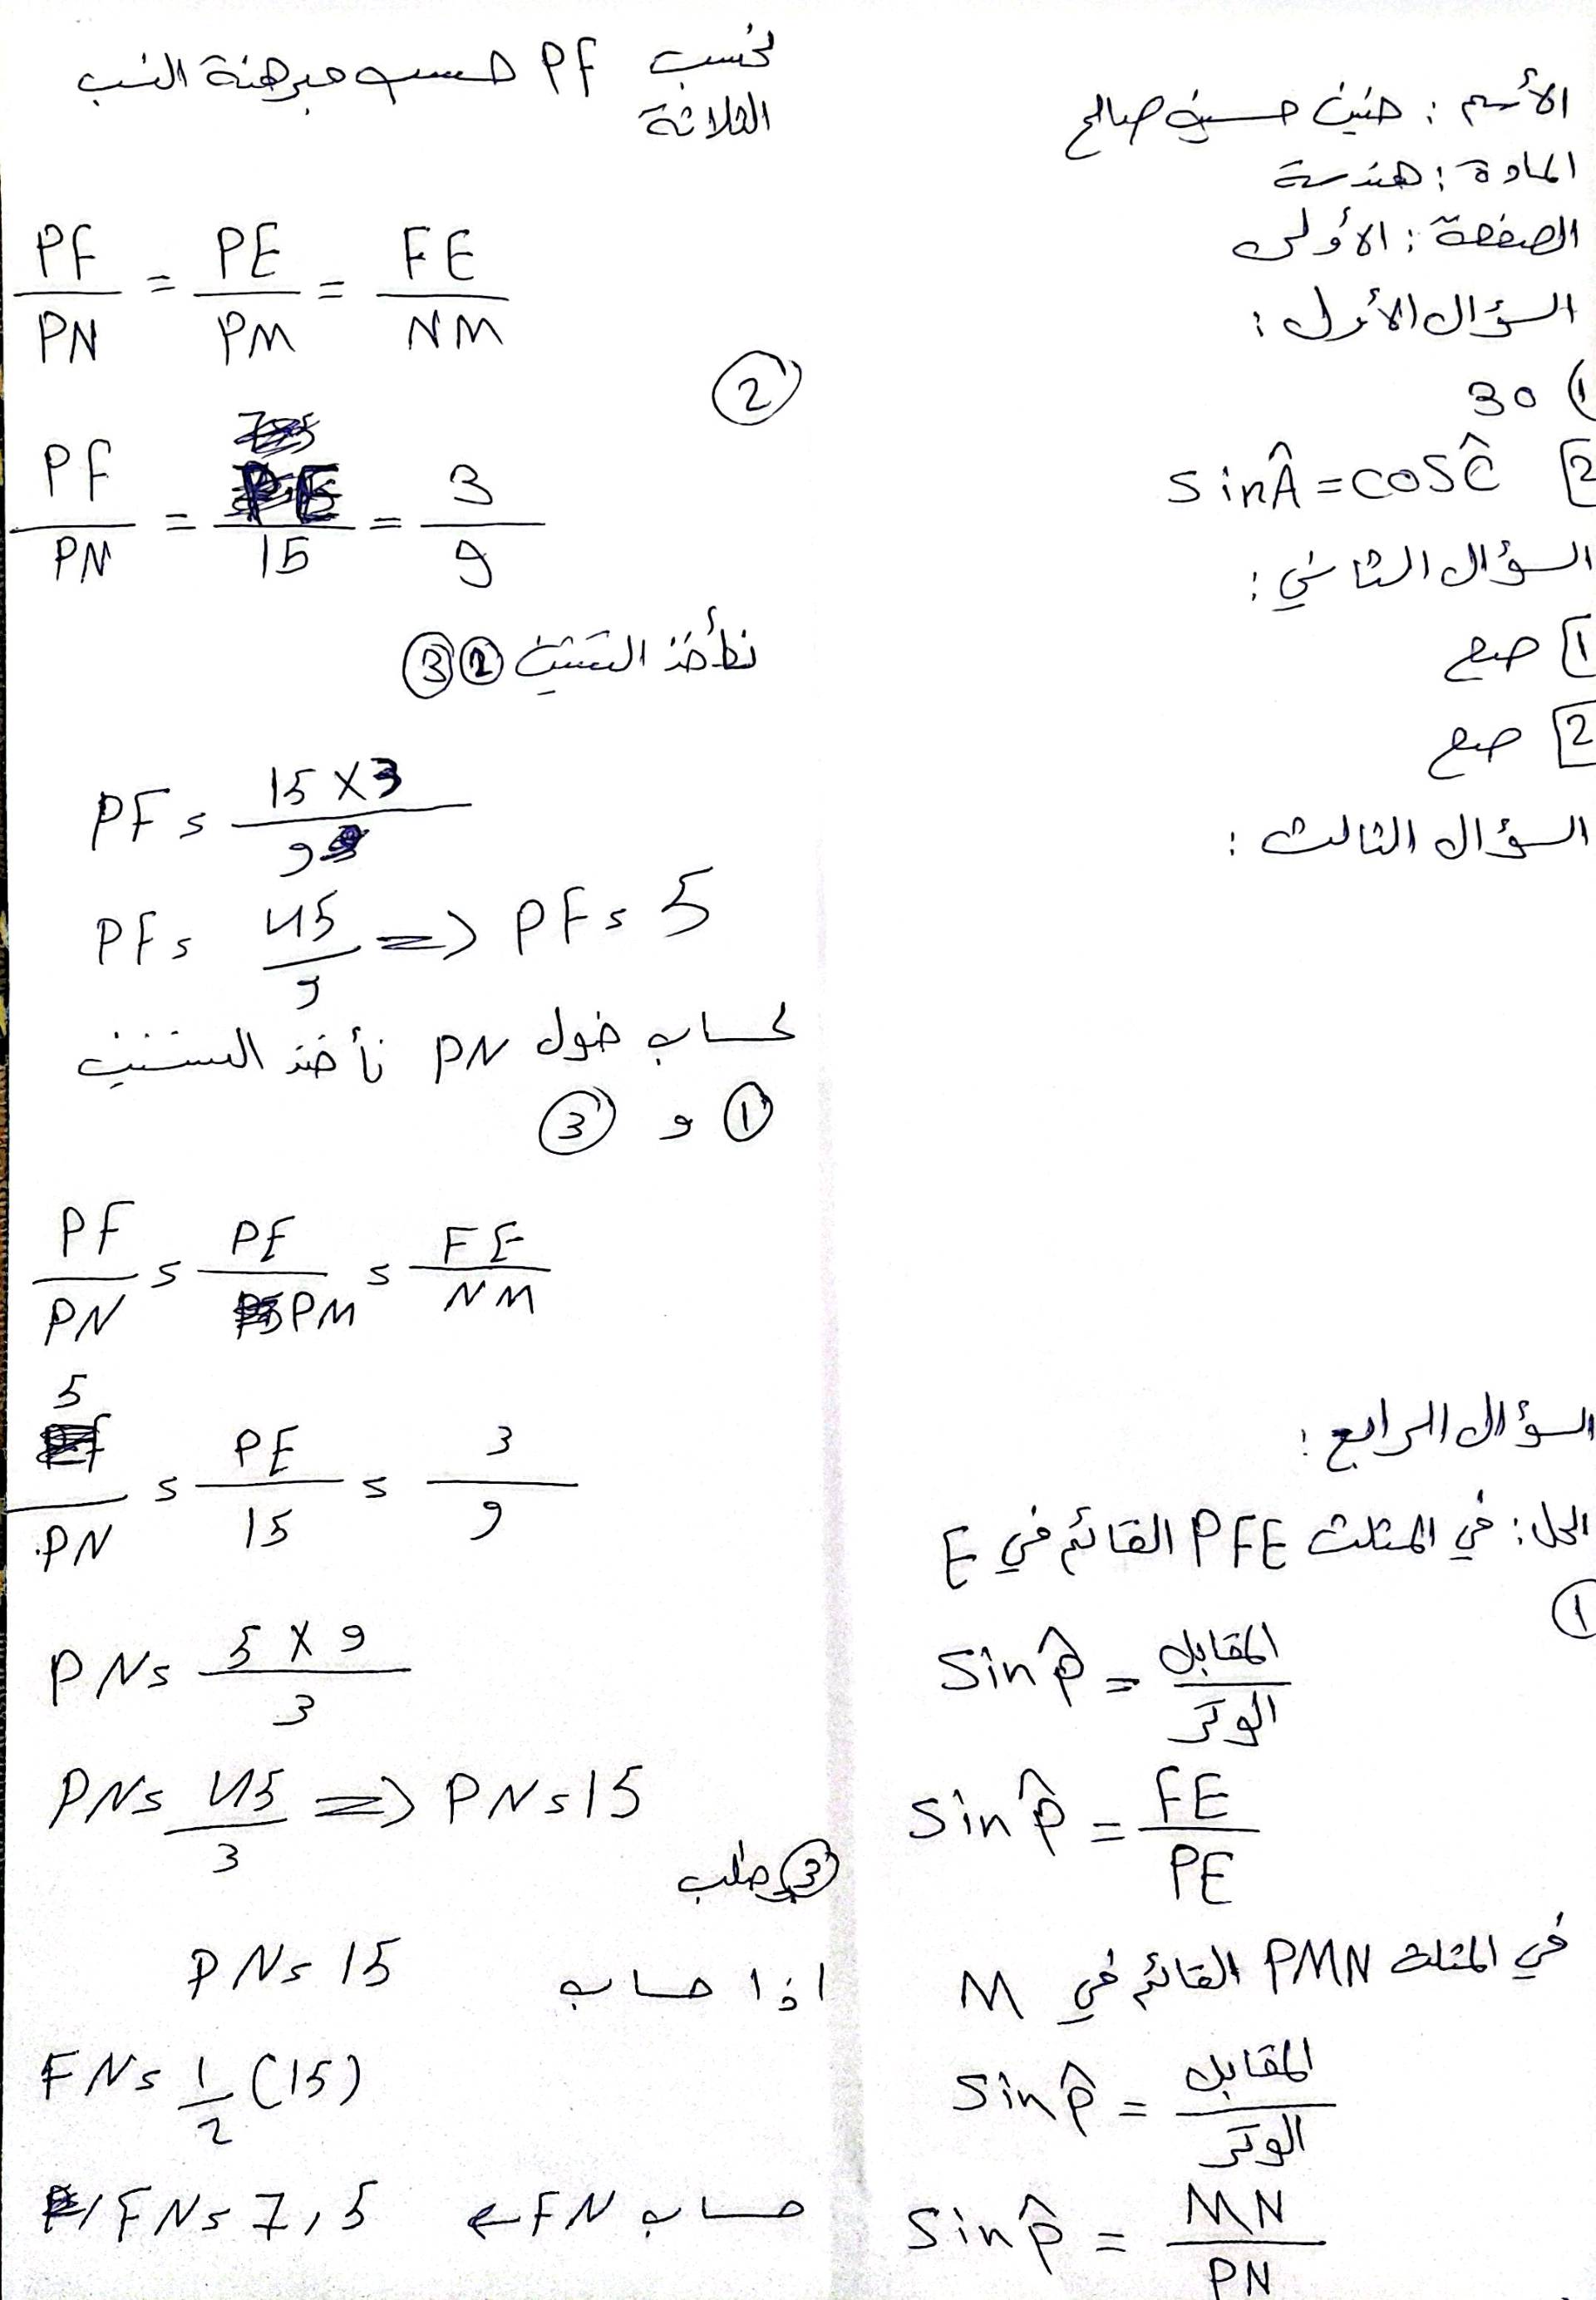 الأسم : حنين حسين صالح
المادة : هندسة
الصفحة : الأولى
السؤال الأول :
1) 30
2 sinÂ = cosĈ
السؤال الثاني :
1 صح
2 صح
السؤال الثالث :
السؤال الرابع :
الحل : في المثلث PFE القائم في E
1
sin P̂ = المقابل / الوتر
sin P̂ = FE / PE
في المثلث PMN القائم في M
sin P̂ = المقابل / الوتر
sin P̂ = MN / PN
نحسب PF حسب مبرهنة النسب
الثلاثة
PF / PN = PE / PM = FE / NM
2
PF / PN = PE / 15 = 3 / 9
نأخذ 2 3
PF = 15 × 3 / 9
PF = 45 / 9 => PF = 5
لحساب طول PN نأخذ
1 و 3
PF / PN = PE / PM = FE / NM
5 / PN = PE / 15 = 3 / 9
PN = 5 × 9 / 3
PN = 45 / 3 => PN = 15
3 طلب
اذا حساب PN = 15
FN = 1 / 2 (15)
حساب FN ← FN = 7,5